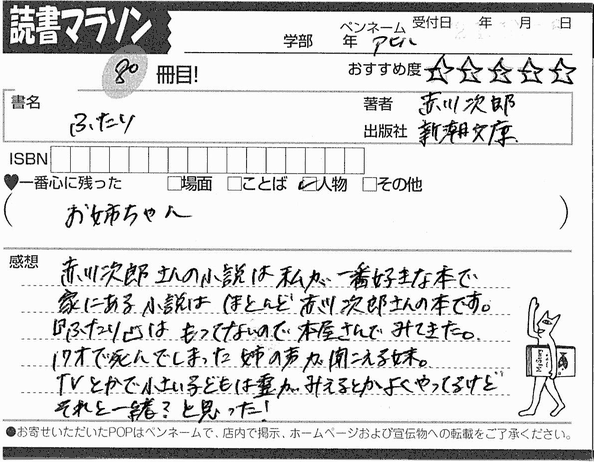 読書マラソン
学部 年 ペンネーム アピル 受付日 年 月 日
80 冊目! おすすめ度 ☆☆☆☆☆
書名 ふたり
著者 赤川次郎
出版社 新潮文庫
ISBN
♥一番心に残った □場面 □ことば ☑人物 □その他
(お姉ちゃん)
感想
赤川次郎さんの小説は私が一番好きな本で
家にある小説はほとんど赤川次郎さんの本です。
『ふたり』はもってないので本屋さんでみてきた。
17才で死んでしまった姉の声が聞こえる妹。
TVとかで小さい子どもは霊がみえるとかよくやってるけど
それと一緒?と思った!
●お寄せいただいたPOPはペンネームで、店内で掲示、ホームページおよび宣伝物への転載をご了承ください。